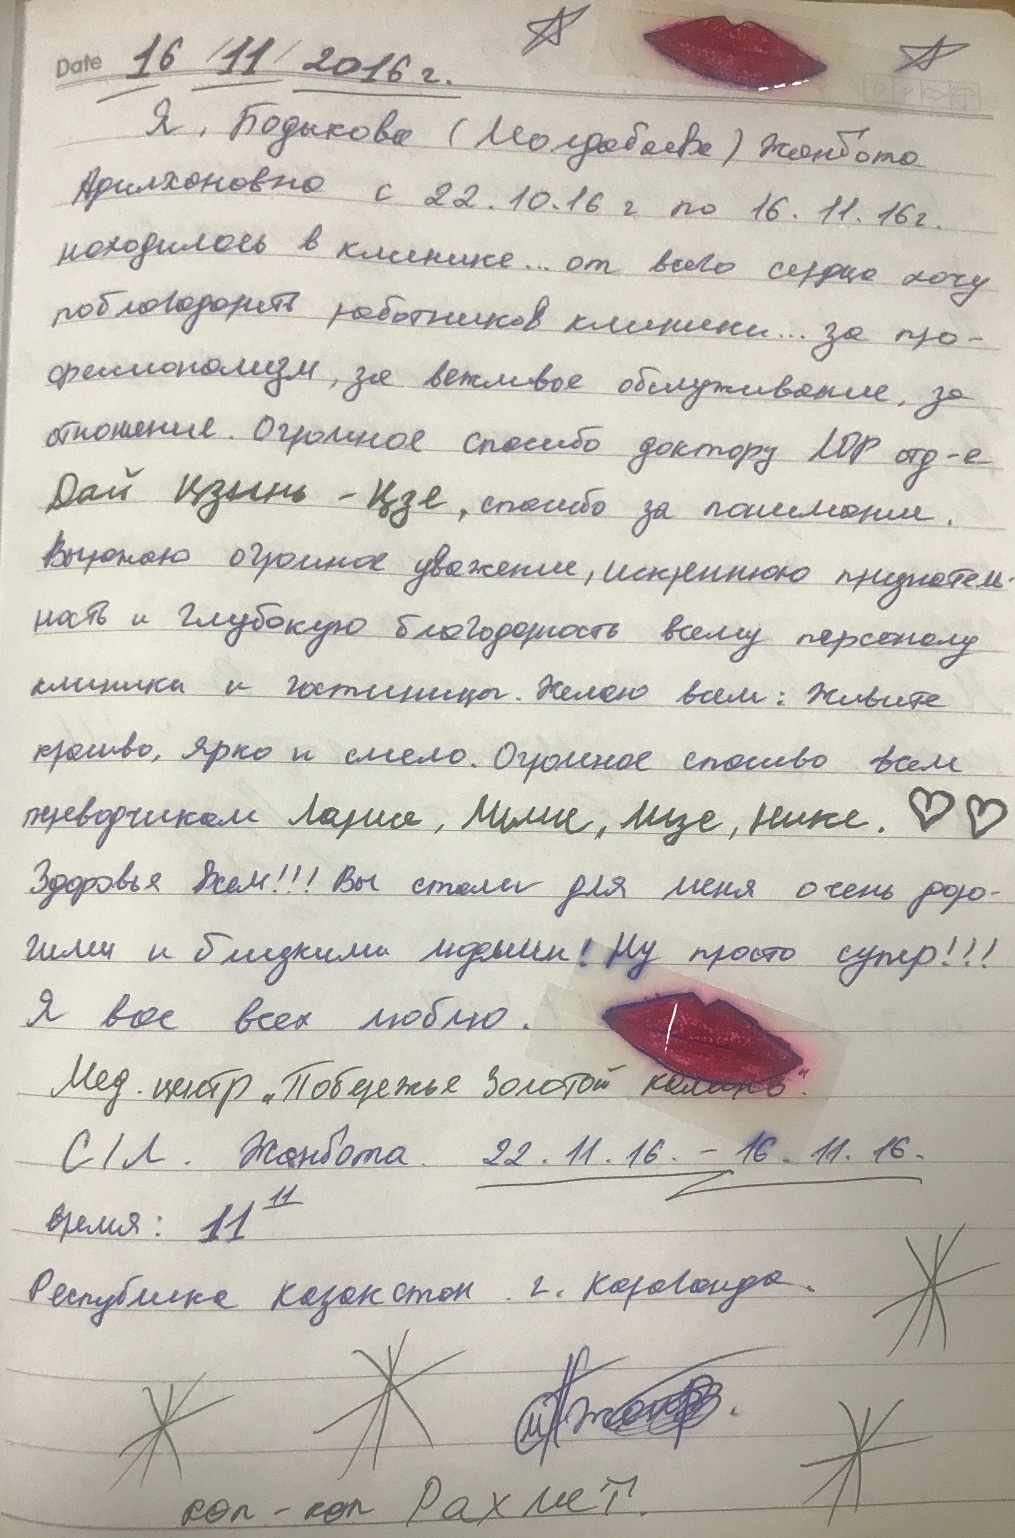 Date 16/11/2016 г.
Я, Бодыкова (Молдабаева) Жанбота
Арилхановна с 22.10.16 г по 16.11.16 г.
находилась в клинике... от всего сердца хочу
поблагодарить работников клиники... за про-
фессионализм, за вежливое обслуживание, за
отношение. Огромное спасибо доктору ЛОР отд-е
Дай Цзынь-Цзе, спасибо за понимание.
Выражаю огромное уважение, искреннюю признатель-
ность и глубокую благодарность всему персоналу
клиники и гостиницы. Желаю всем: Живите
красиво, ярко и смело. Огромное спасиво всем
переводчикам Ларисе, Миле, Лизе, Нике.
Здоровья Всем!!! Вы стали для меня очень доро-
гими и близкими людьми! Ну просто супер!!!
Я вас всех люблю.
Мед. центр „Побережье Золотой
С/Л. Жанбота. 22.11.16. – 16.11.16.
время: 11 11
Республика Казакстан. г. Караганда.
коп-коп Рахмет.